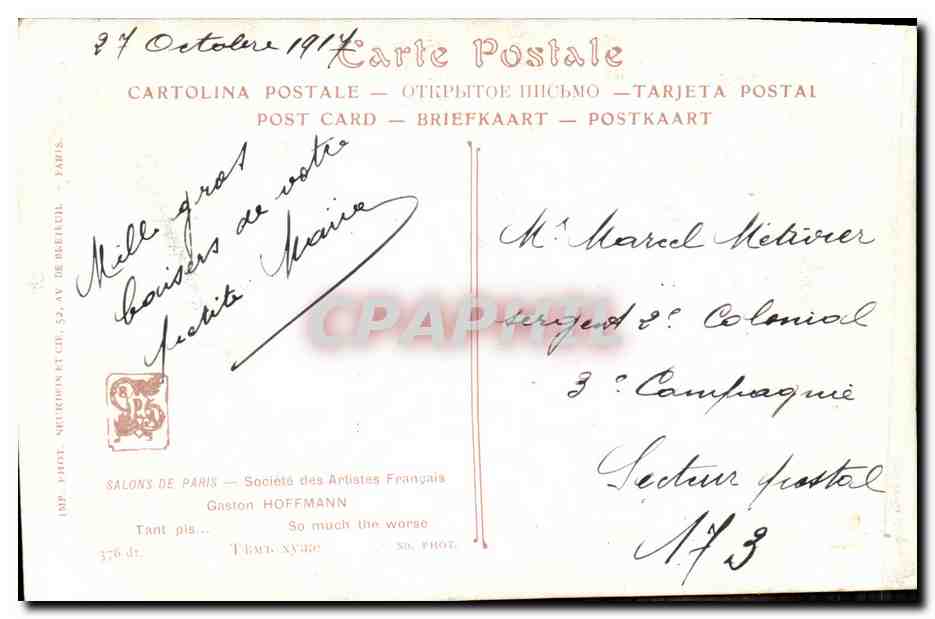 27 Octobre 1917
Carte Postale
CARTOLINA POSTALE — ОТКРЫТОЕ ПИСЬМО — TARJETA POSTAL
POST CARD — BRIEFKAART — POSTKAART
Mille gros
baisers de votre
petite Marie
Mr Marcel Métivier
sergent 2e Colonial
3e Compagnie
Secteur postal
173
CPAPHIL
SALONS DE PARIS — Société des Artistes Français
Gaston HOFFMANN
Tant pis... So much the worse
376 dt. Тѣмъ хуже ND. PHOT.
IMP. PHOT. NEURDEIN ET CIE, 52, AV. DE BRETEUIL - PARIS.